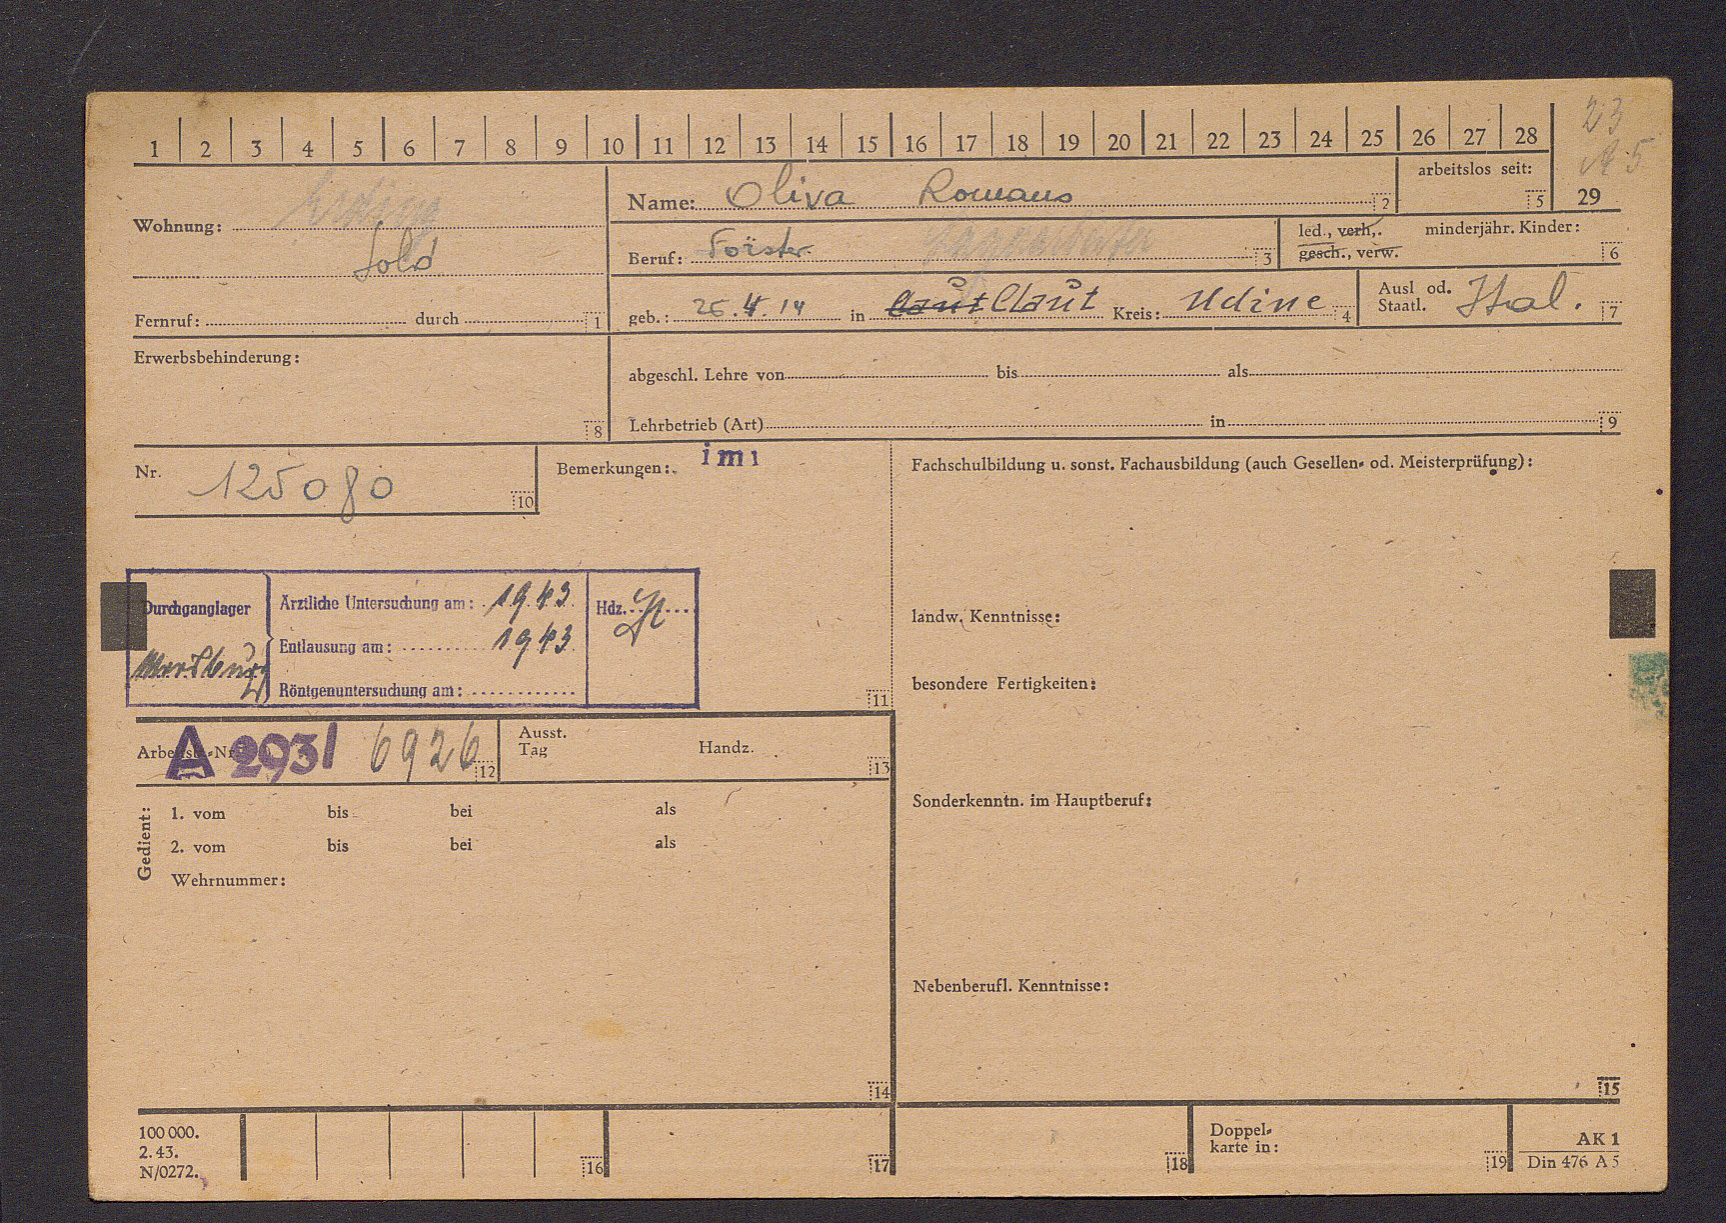 1 2 3 4 5 6 7 8 9 10 11 12 13 14 15 16 17 18 19 20 21 22 23 24 25 26 27 28
23
A 5
29
arbeitslos seit:
5
Wohnung: Erding
Sold
Fernruf: durch 1
Name: Oliva Romano 2
Beruf: Förster 3
led., verh., minderjähr. Kinder:
gesch., verw. 6
geb.: 25.4.14 in Claut Claut Kreis: Udine 4
Ausl od.
Staatl. Ital. 7
Erwerbsbehinderung:
8
abgeschl. Lehre von bis als
Lehrbetrieb (Art) in 9
Nr. 125080 10
Bemerkungen: imi
11
Durchganglager
Ärztliche Untersuchung am: 1943
Entlausung am: 1943
Röntgenuntersuchung am:
Hdz.
Fachschulbildung u. sonst. Fachausbildung (auch Gesellen- od. Meisterprüfung):
landw. Kenntnisse:
besondere Fertigkeiten:
Sonderkenntn. im Hauptberuf:
Nebenberufl. Kenntnisse:
15
A 293/ 6926 12
Ausst.
Tag Handz. 13
Gedient:
1. vom bis bei als
2. vom bis bei als
Wehrnummer:
14
100 000.
2. 43.
N/0272.
16
17
18
Doppel-
karte in: 19
AK 1
Din 476 A 5